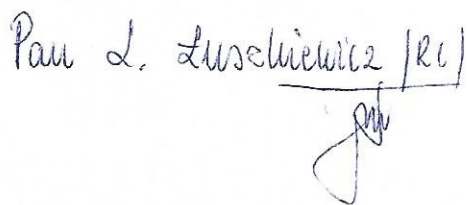 Pan L. Luszkiewicz (RC)